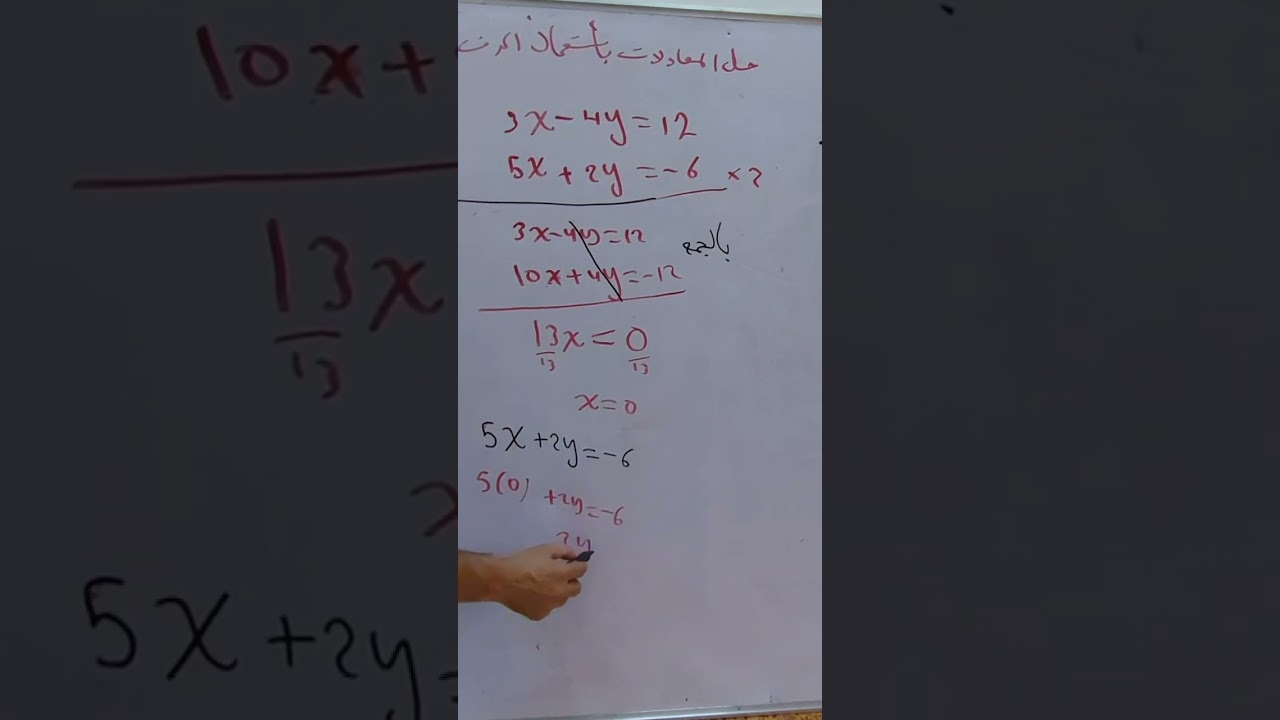 حل المعادلات بأستعمال الحذف
3x-4y=12
5x+2y=-6 ×2
3x-4y=12
بالجمع
10x+4y=-12
13x=0
13 13
x=0
5x+2y=-6
5(0) +2y=-6
2y
10x+
13x
13
5x+2y=